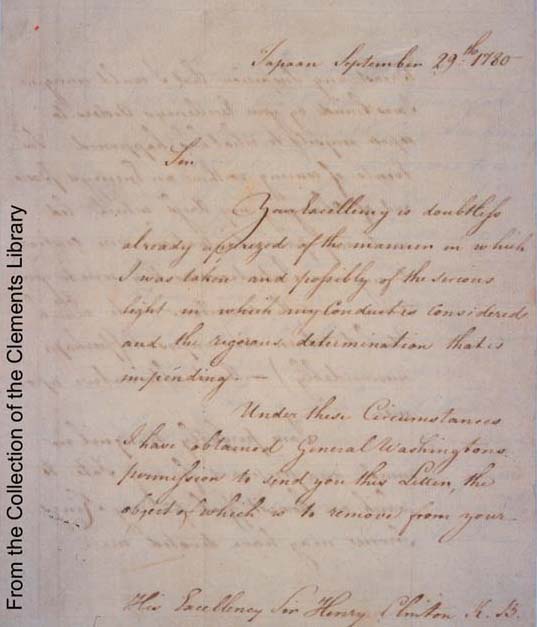 Tapaan September 29.th 1780
Sir.
Your Excellency is doubtless
already apprized of the manner in which
I was taken and possibly of the serious
light in which my Conduct is considered
and the rigorous determination that is
impending. —
Under these Circumstances
I have obtained General Washingtons
permission to send you this Letter, the
object of which is to remove from your
His Excellency Sir Henry Clinton K. B.
From the Collection of the Clements Library